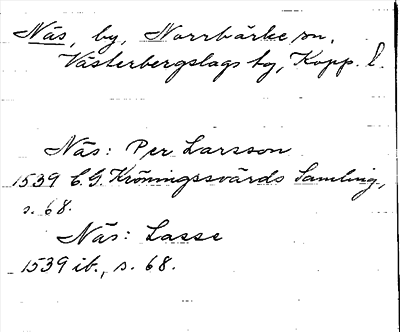 Näs, by, Norrbärke sn,
Västerbergslags hg, Kopp. l.
Näs: Per Larsson
1539 C.G. Kröningssvärds Samling,
s. 68.
Näs: Lasse
1539 ib., s. 68.